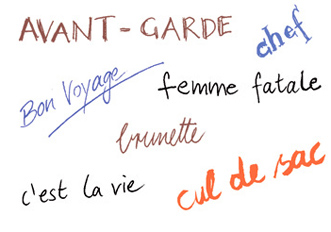 AVANT-GARDE
chef
Bon Voyage
femme fatale
brunette
c'est la vie
cul de sac